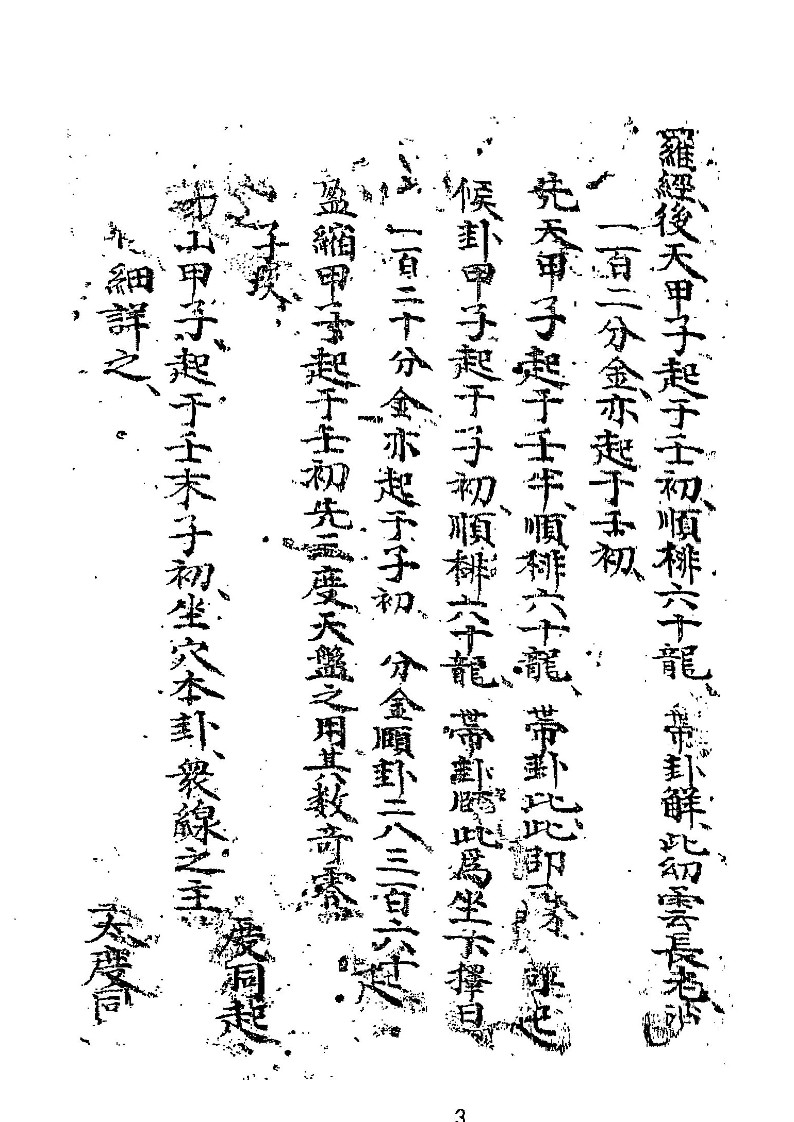 羅經後天甲子起于壬初順排六十龍 帶卦解此幼雲長老
一百二分金亦起于壬初
先天甲子起于壬半順排六十龍 帶卦比此即
候卦甲子起于子初順排六十龍 帶卦 此爲坐下擇日
一百二十分金亦起于子初 分金頤卦二八三百六十起
盈縮甲子起于壬初先三度天盤之用其数竒零
子 度同起
山甲子起于壬末子初坐穴本卦衆線之主
細詳之 太度同
3